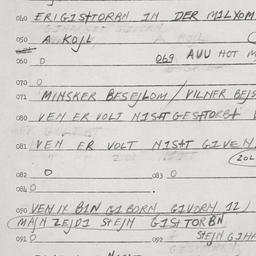 040 ER IGISTTORAN IN DER MILXOM
050 A KOJL
060 0 069 AUU HOT M
070 0
071 MINSKER BESEJLOM / VILNER BEJS
080 VEN ER VOLT NISHT GESHTORBT
081 VEN ER VOLT NISHT GIVEN
(ZOL
082 0 083 0
084 0
090 VEN IX BIN GIBORN GIVORN 12/
(MAJN ZEJDI SHEJN GISHTORBN
091 0 092 SHEJN GIHA